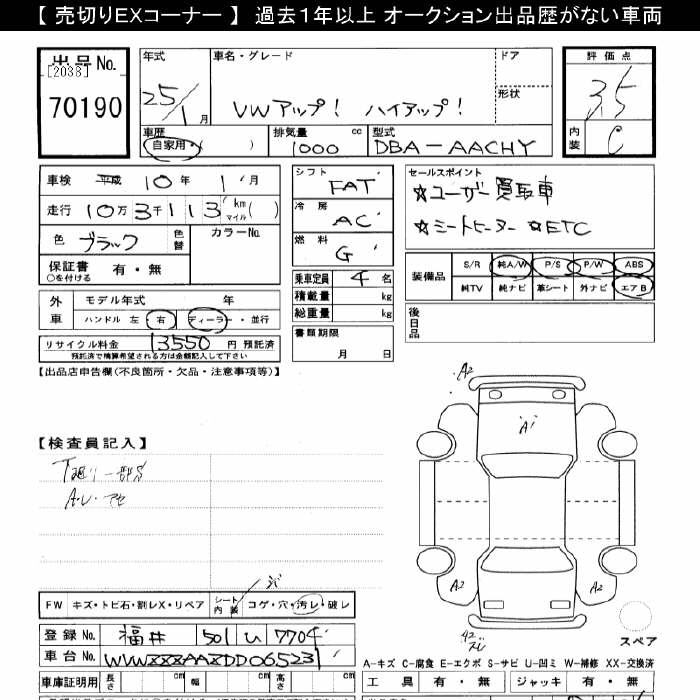 【 売切りEXコーナー 】 過去1年以上 オークション出品歴がない車両
出品No.
[2038]
70190
年式
25/1月
車名・グレード
VWアップ! ハイアップ!
ドア
形状
評価点
3.5
内装
C
車歴
自家用・( )
排気量
1000 cc
型式
DBA-AACHY
車検 平成 10年 1月
走行 10万3千113 km マイル( )
色 ブラック 色替
カラーNo.
保証書 有・無
○を付ける
外車 モデル年式 年
ハンドル 左 右 ディーラー・並行
リサイクル料金 13550 円 預託済
預託済で精算希望される方は金額記入して下さい
シフト
FAT
冷房
AC
燃料
G
乗車定員 4 名
積載量 kg
総重量 kg
書類期限
月 日
セールスポイント
☆ユーザー買取車
☆シートヒーター ☆ETC
装備品
S/R 純A/W P/S P/W ABS
純TV 純ナビ 革シート 外ナビ エアB
後日品
【出品店申告欄(不良箇所・欠品・注意事項等)】
【検査員記入】
下廻り一部S
A・U・アセ
A2
A1
A2
A2
A2
スレ
スペア
FW キズ・トビ石・割レX・リペア
シート内装 コゲ・穴・汚レ・破レ
登録No. 福井 501 い 7704
車台No. WVWZZZAAZDD065231
A-キズ C-腐食 E-エクボ S-サビ U-凹ミ W-補修 XX-交換済
車庫証明用 長さ cm 幅 cm 高さ cm
工具 有・無 ジャッキ 有・無